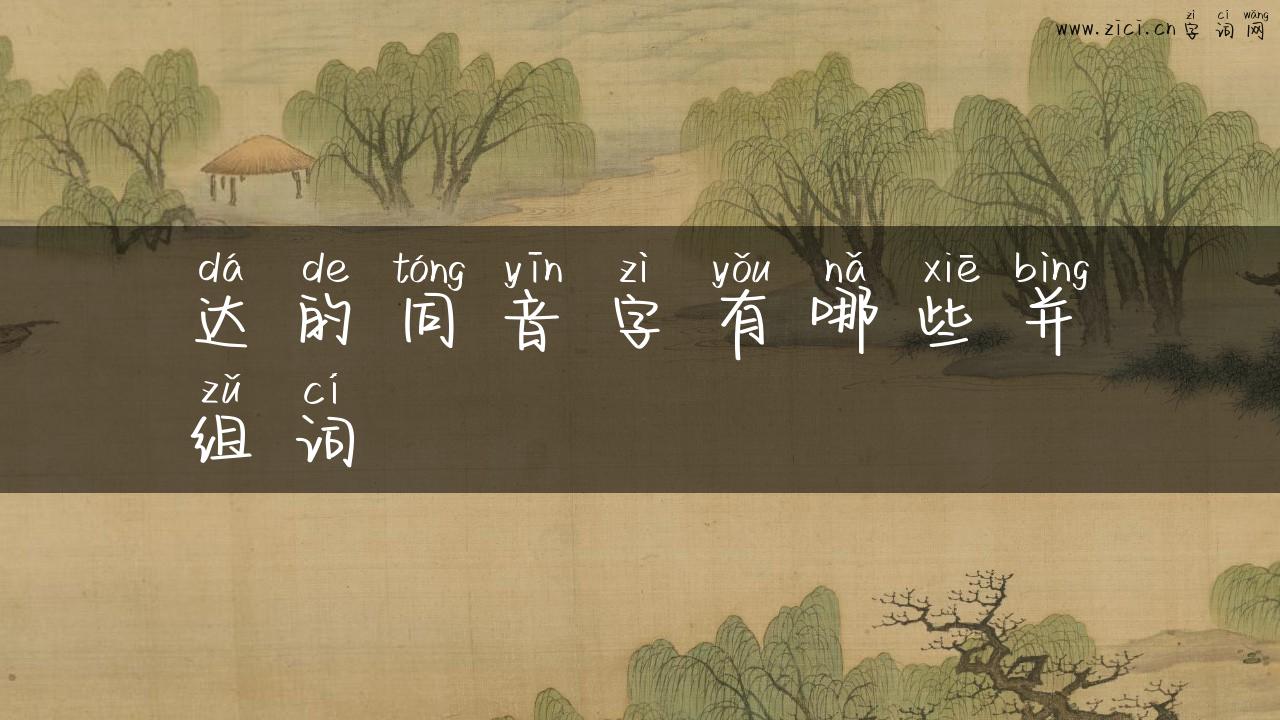 zì cí wǎng
www.zici.cn 字词网
dá de tóng yīn zì yǒu nǎ xiē bìng
达的同音字有哪些并
zǔ cí
组词